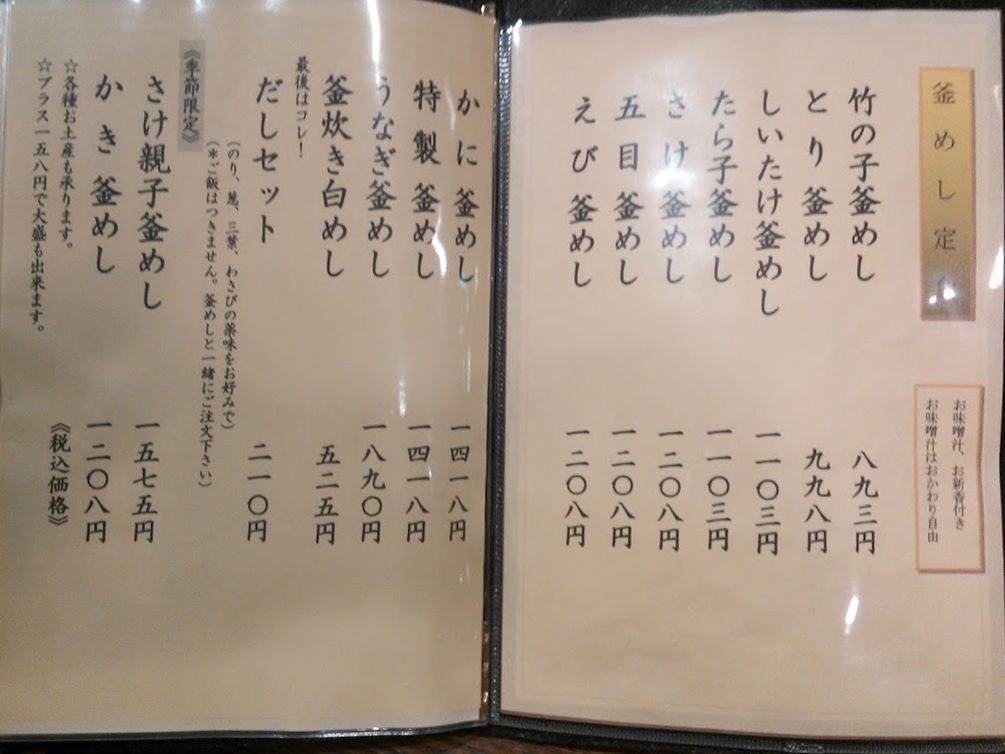 釜めし定
お味噌汁、お新香付き
お味噌汁はおかわり自由
竹の子釜めし 八九三円
とり釜めし 九九八円
しいたけ釜めし 一一〇三円
たら子釜めし 一一〇三円
さけ釜めし 一二〇八円
五目釜めし 一二〇八円
えび釜めし 一二〇八円
かに釜めし 一四一八円
特製釜めし 一四一八円
うなぎ釜めし 一八九〇円
釜炊き白めし 五二五円
最後はコレ!
だしセット 二一〇円
(のり、葱、三葉、わさびの薬味をお好みで)
(*ご飯はつきません。釜めしと一緒にご注文下さい)
《季節限定》
さけ親子釜めし 一五七五円
かき釜めし 一二〇八円
☆各種お土産も承ります。
《税込価格》
☆プラス一五八円で大盛も出来ます。